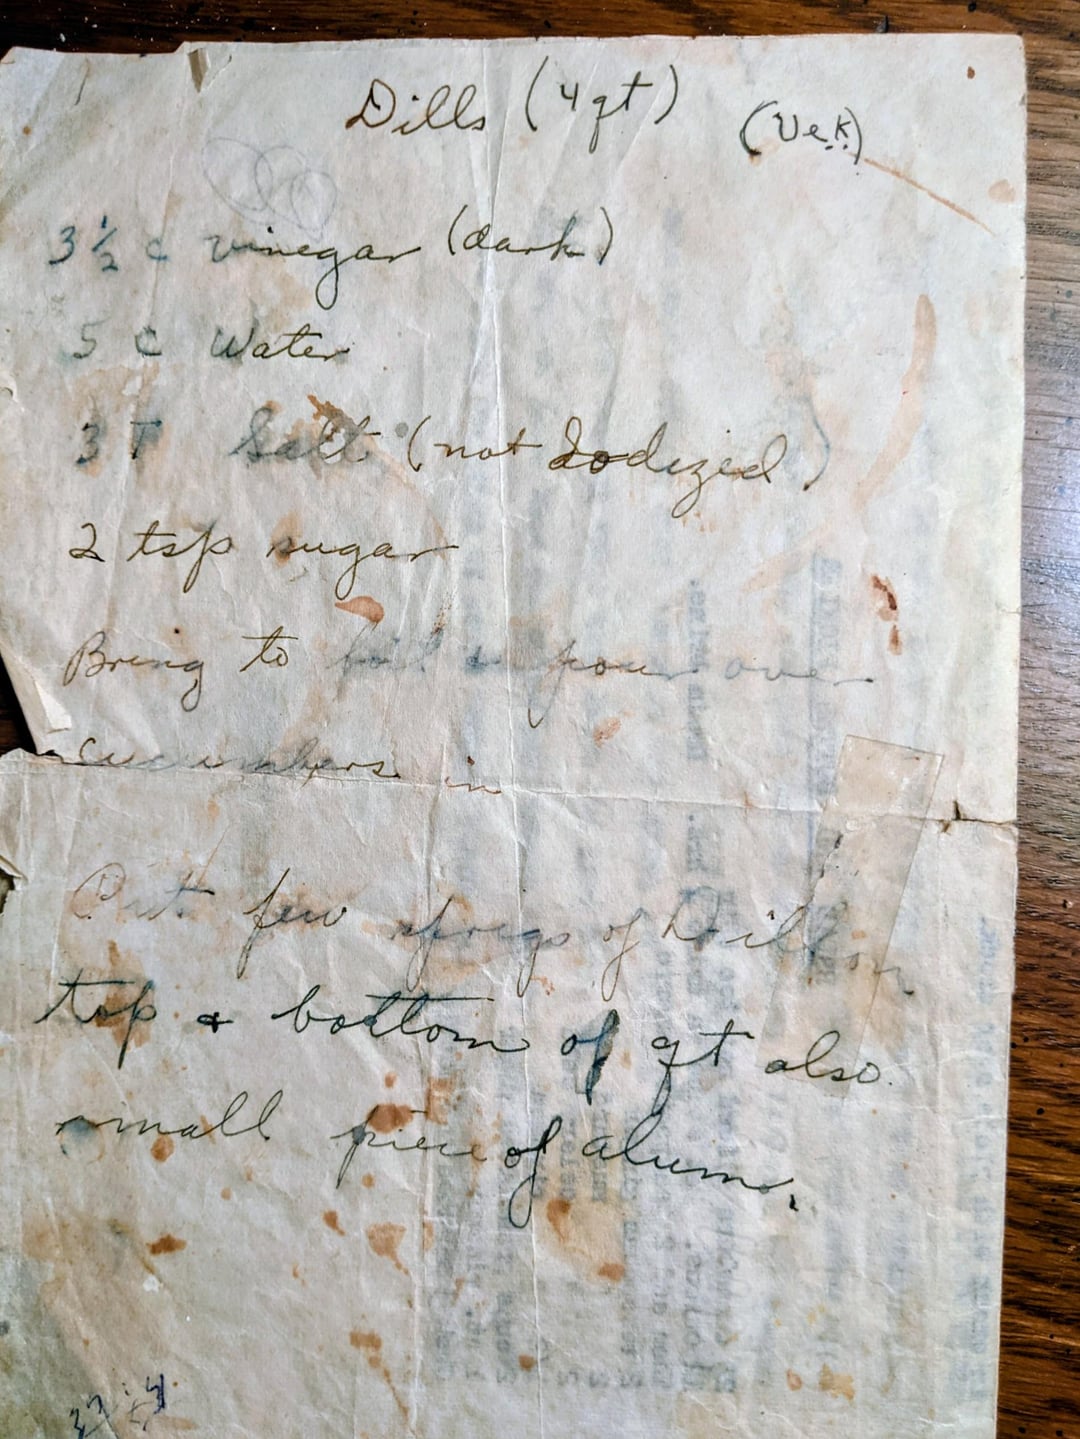 Dills (4 qt) (Vek)
3 1/2 c vinegar (dark)
5 c Water
3 T Salt (not Iodized)
2 tsp sugar
Bring to boil & pour over
cucumbers in
Put few sprigs of Dill on
top & bottom of qt also
small piece of alum.